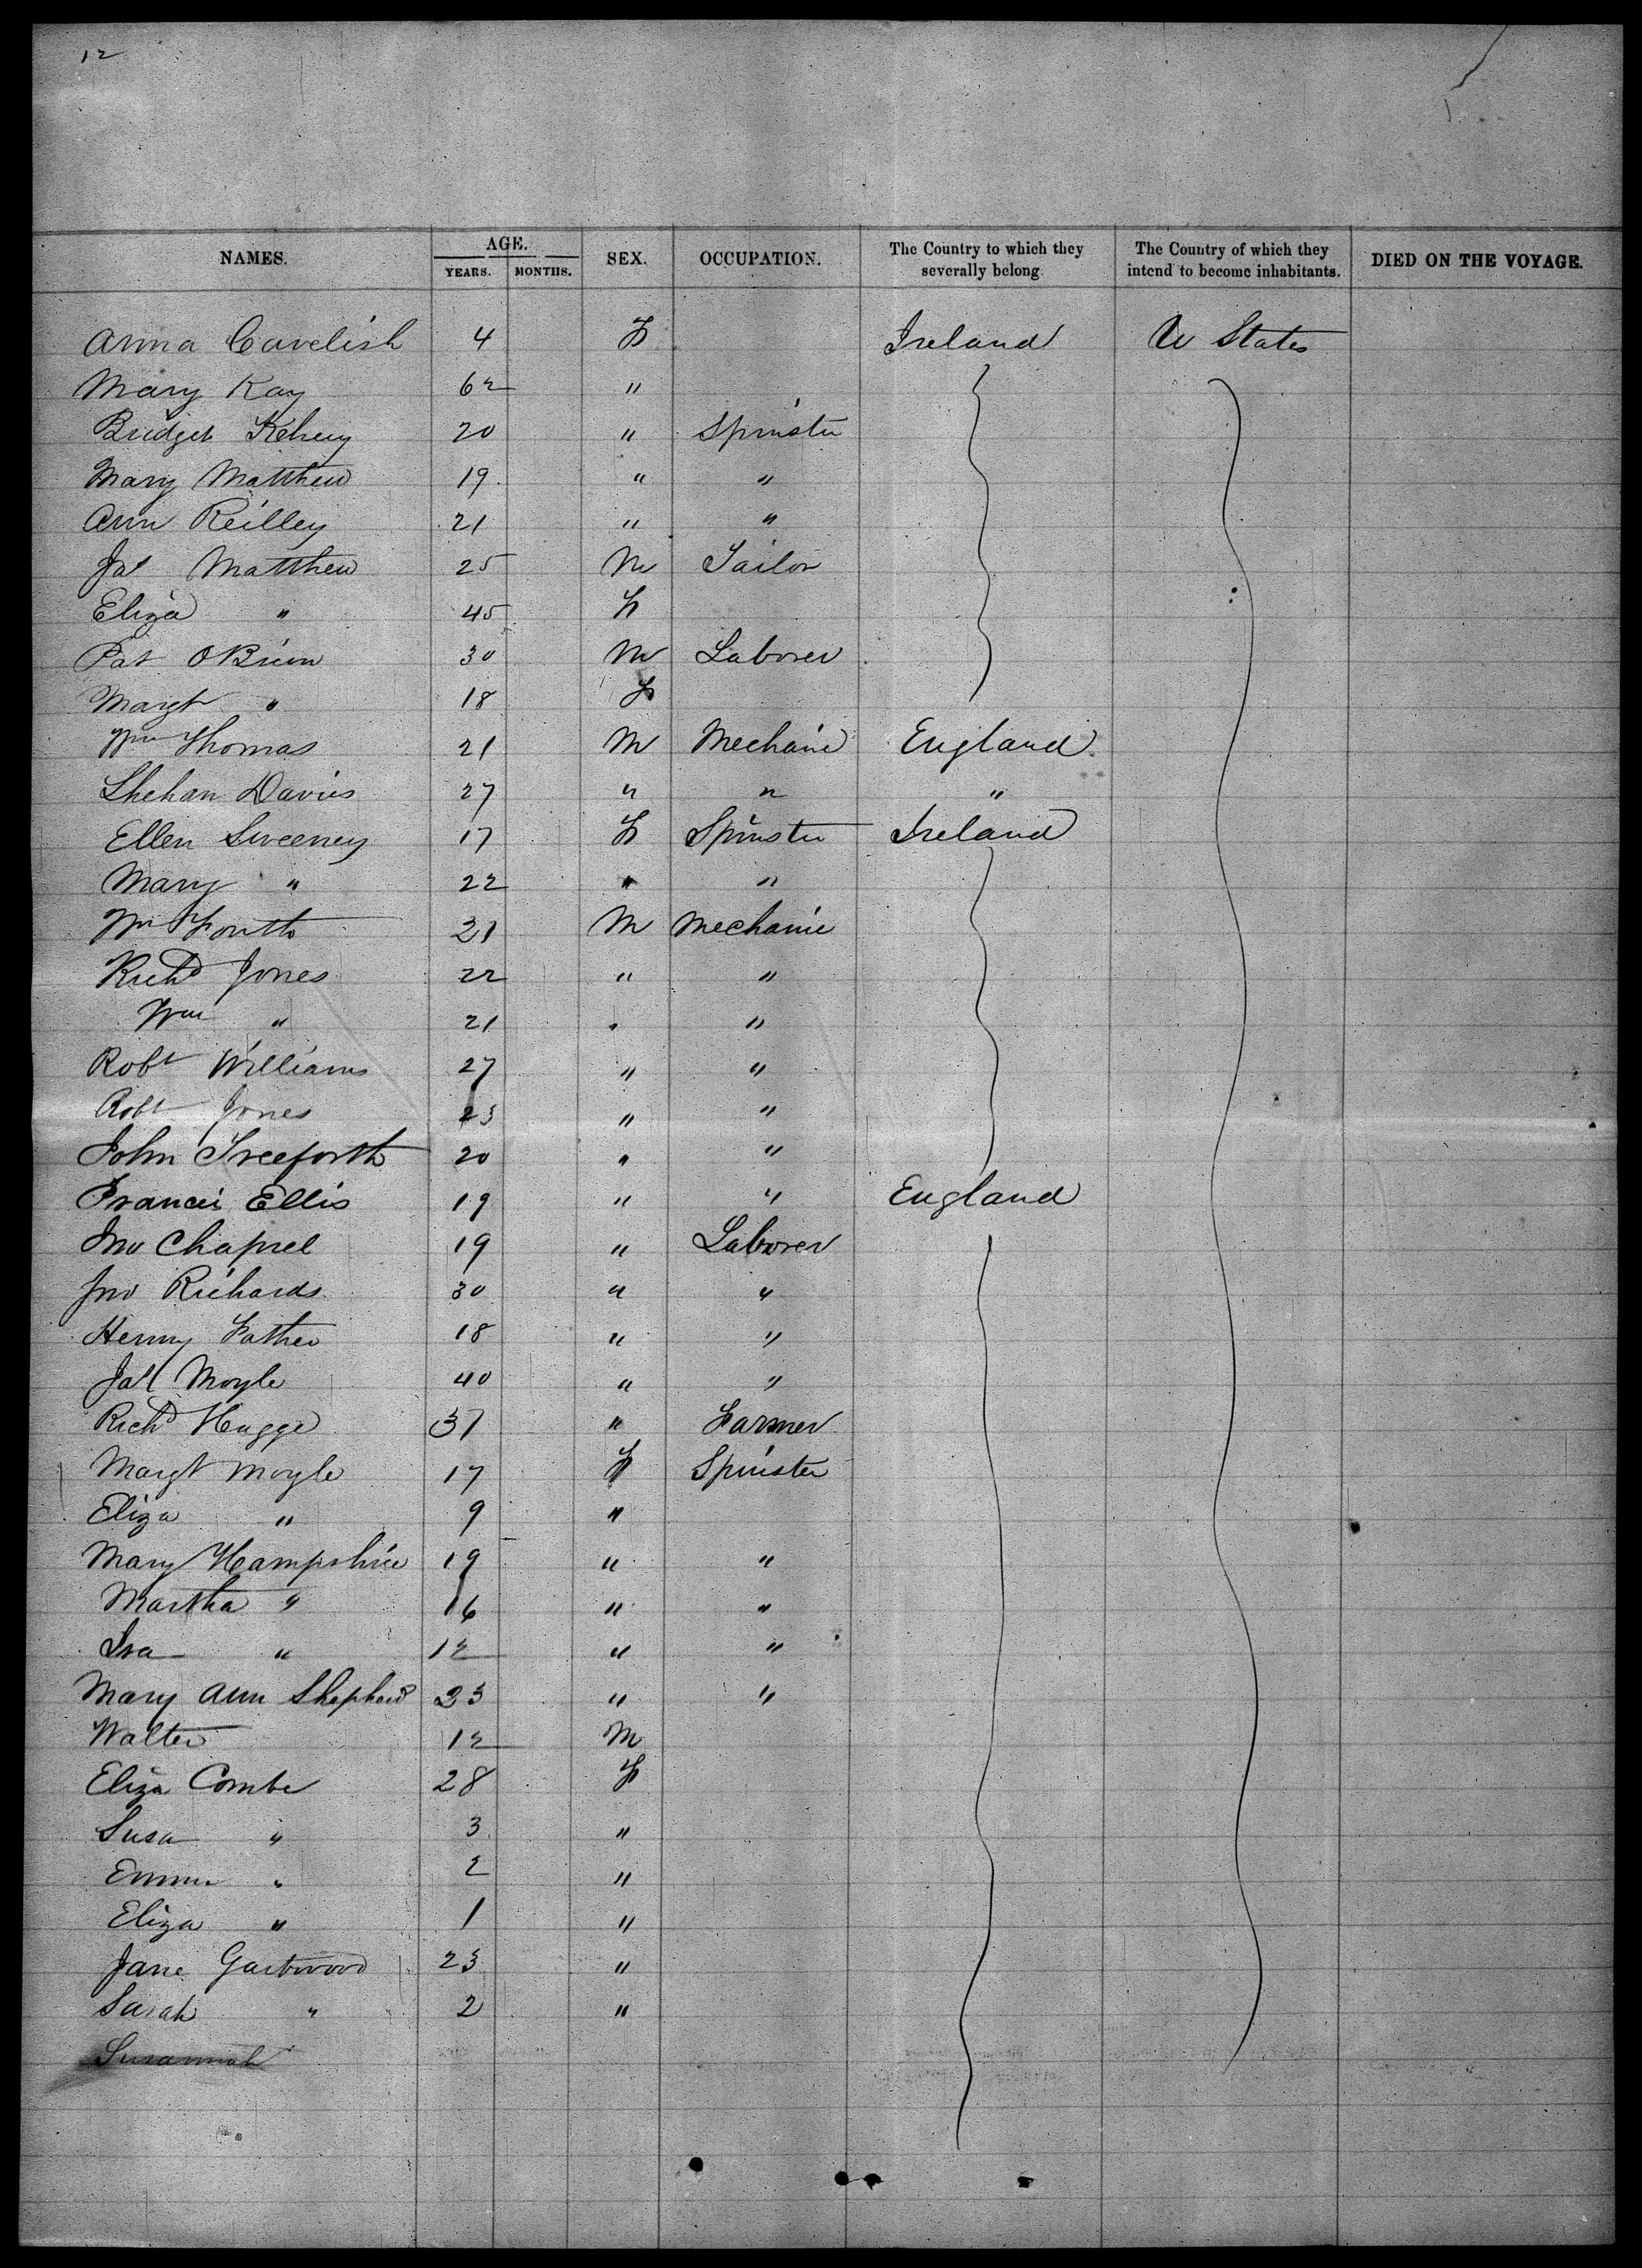 12
NAMES. AGE. YEARS. MONTHS. SEX. OCCUPATION. The Country to which they severally belong. The Country of which they intend to become inhabitants. DIED ON THE VOYAGE.
Anna Cavelish 4 F Ireland U States
Mary Kay 62 "
Bridget 20 " Spinster
Mary Matthew 19 " "
Ann Reilley 21 " "
Jas Matthew 25 M Tailor
Eliza " 45 F
Pat OBrien 30 M Laborer
Margt " 18 F
Wm Thomas 21 M Mechanic England
Shehan Davies 27 " " "
Ellen Sweeney 17 F Spinster Ireland
Mary " 22 " "
Wm 21 M Mechanic
Richd Jones 22 " "
Wm " 21 " "
Robt Williams 27 " "
Robt Jones 23 " "
John Treeforth 20 " "
Francis Ellis 19 " " England
Jno Chapel 19 " Laborer
Jno Richards 30 " "
Henry Father 18 " "
Jas Moyle 40 " "
Richd Hugge 37 " Farmer
Margt Moyle 17 F Spinster
Eliza " 9 "
Mary Hampshire 19 " "
Martha " 16 " "
Isa " 12 " "
Mary Ann Shepherd 23 " "
Walter 12 M
Eliza Combe 28 F
Susa " 3 "
Emma " 2 "
Eliza " 1 "
Jane Gartwood 23 "
Sarah " 2 "
Susannah